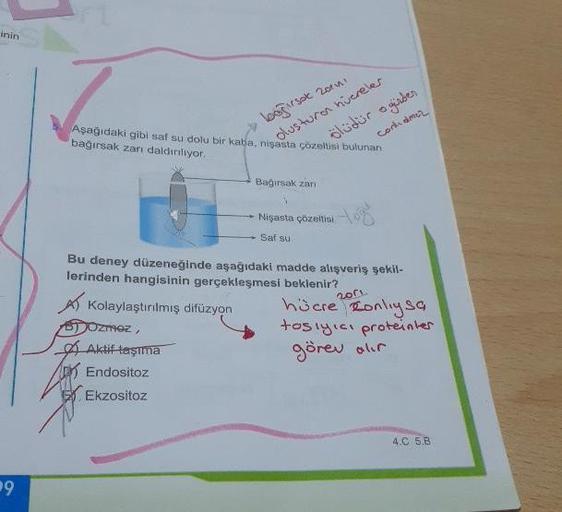 inin
bağırsak zarını
oluşturan hücreler
ölüdür o yüzden
canlı olmaz
Aşağıdaki gibi saf su dolu bir kaba, nişasta çözeltisi bulunan
bağırsak zarı daldırılıyor.
Bağırsak zarı
Nişasta çözeltisi
Saf su
Bu deney düzeneğinde aşağıdaki madde alışveriş şekil-
lerinden hangisinin gerçekleşmesi beklenir?
A) Kolaylaştırılmış difüzyon
B) Ozmoz
C) Aktif taşıma
D) Endositoz
E) Ekzositoz
hücre zarı canlıysa
taşıyıcı proteinler
görev alır
4.C 5.B
99